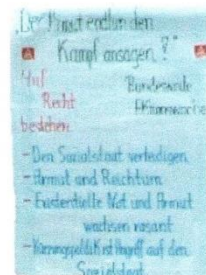 „Der Armut endlich den
Kampf ansagen!"
Auf
Recht
bestehen
Bundesweite
Aktionswoche
- Den Sozialstaat verteidigen
- Armut und Reichtum
- Existentielle Not und Armut
wachsen rasant
- Kürzungspolitik ist Angriff auf den
Sozialstaat